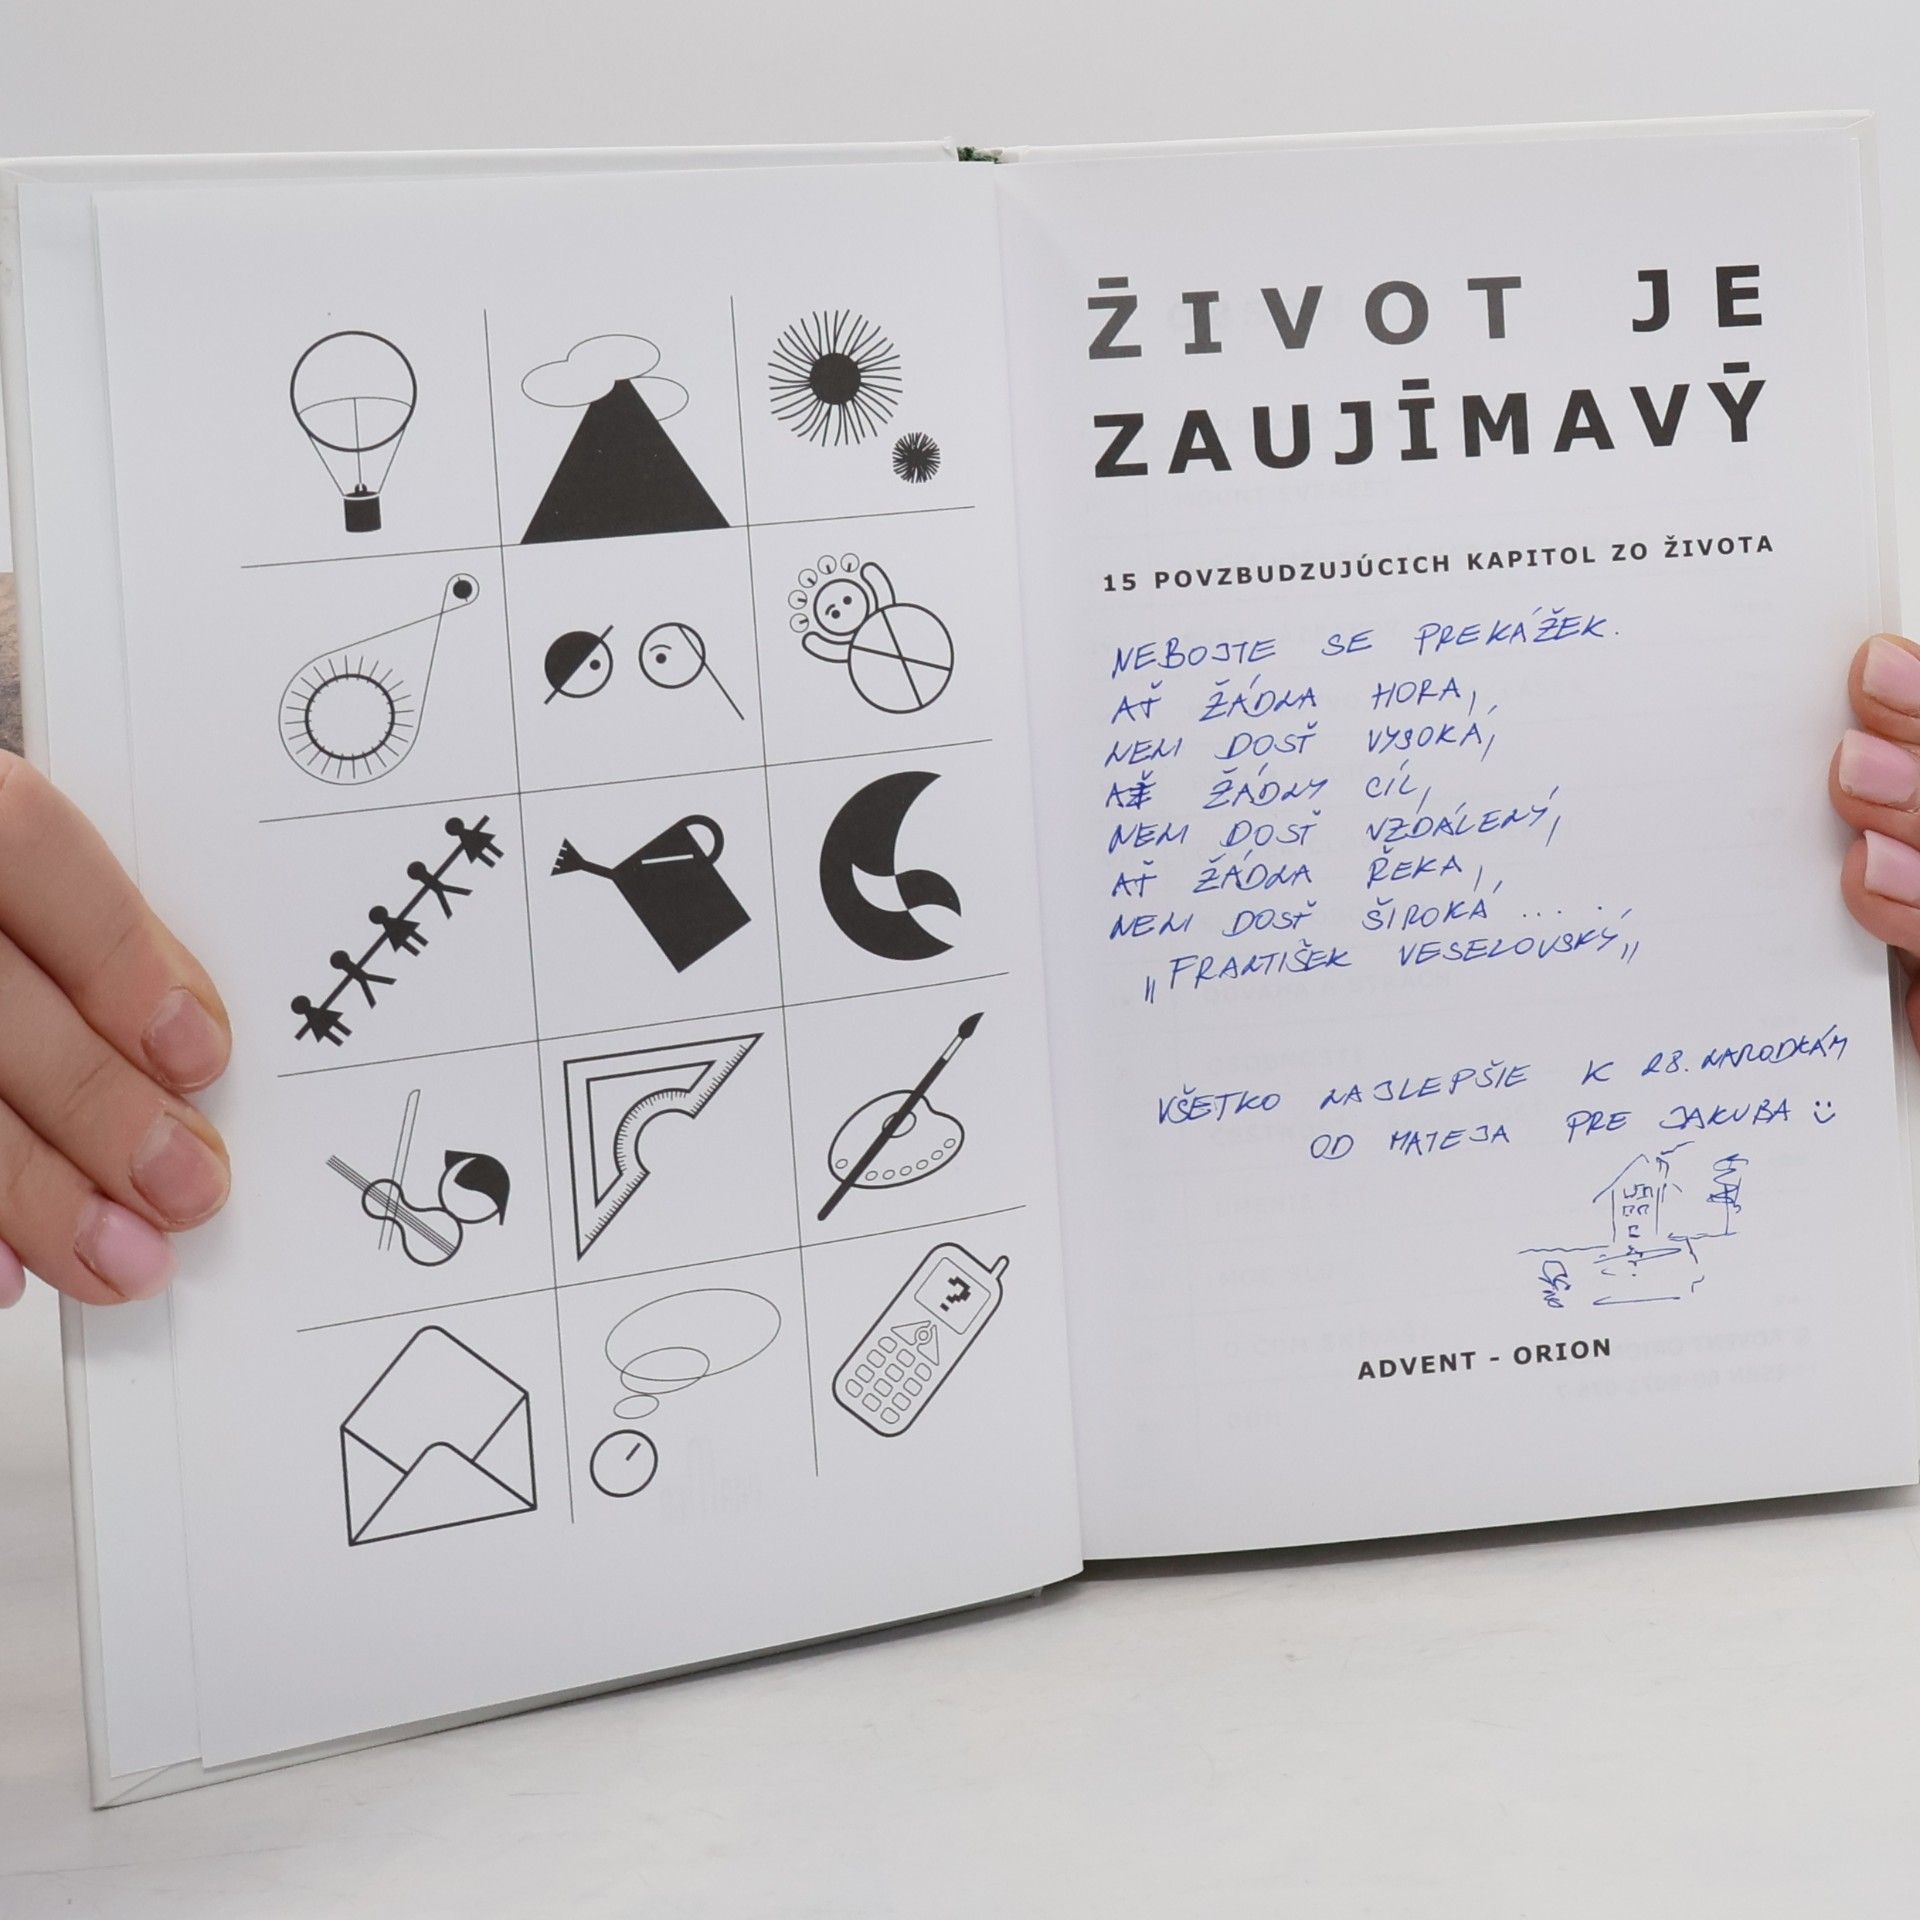 ŽIVOT JE
ZAUJÍMAVÝ
15 POVZBUDZUJÚCICH KAPITOL ZO ŽIVOTA
NEBOJTE SE PREKÁŽEK.
AŤ ŽÁDNA HORA,
NENI DOSŤ VYSOKÁ,
AŤ ŽÁDNY CÍL,
NENI DOSŤ VZDÁLENÝ,
AŤ ŽÁDNA ŘEKA,
NENI DOSŤ ŠIROKÁ .....
„FRANTIŠEK VESELOVSKÝ„
VŠETKO NAJLEPŠIE K 28. NARODKÁM
OD MATEJA PRE JAKUBA
ADVENT - ORION
?